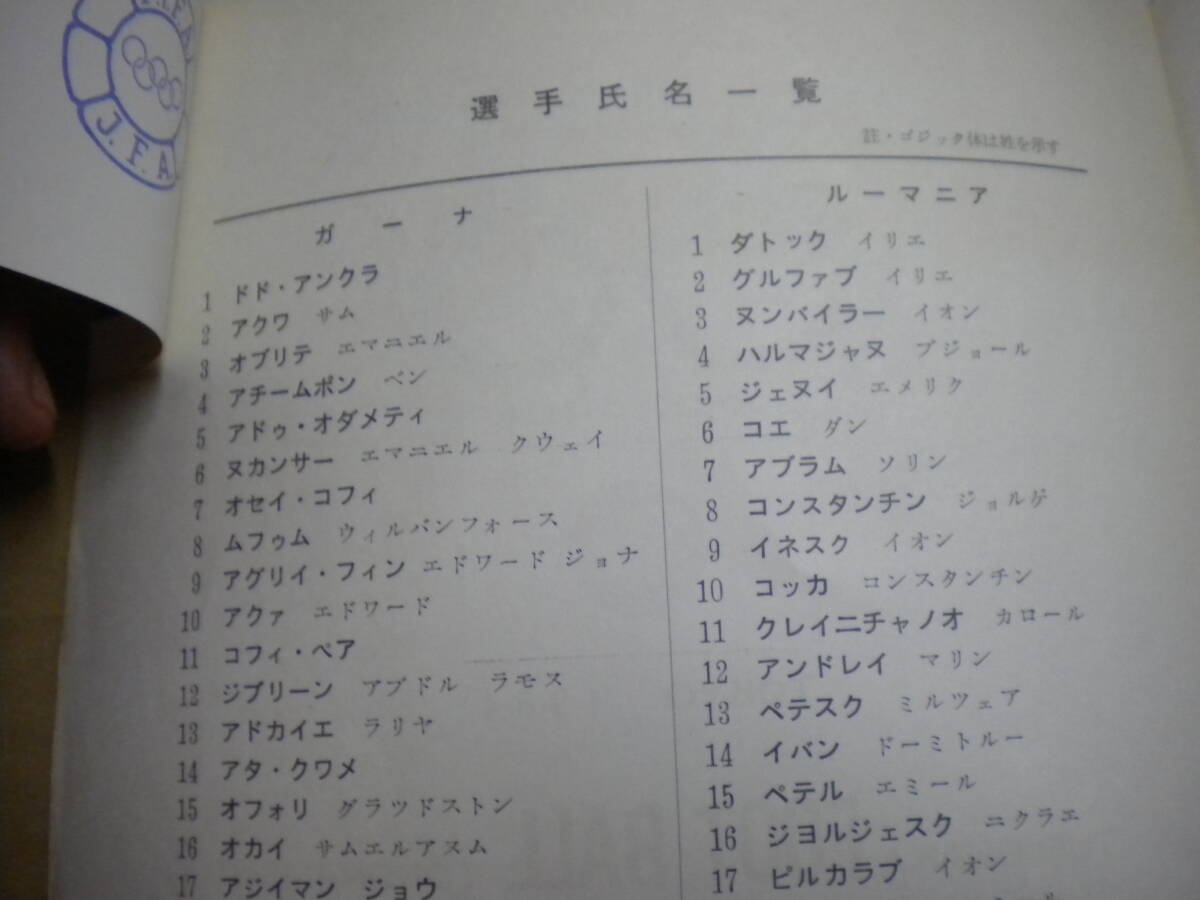 J.F.A
J.F.A
選手氏名一覧
註・ゴジック体は姓を示す
ガーナ
1 ドド・アンクラ
2 アクワ サム
3 オブリテ エマニエル
4 アチームポン ベン
5 アドゥ・オダメティ
6 ヌカンサー エマニエル クウェイ
7 オセイ・コフィ
8 ムフゥム ウィルバンフォース
9 アグリイ・フィン エドワード ジョナ
10 アクァ エドワード
11 コフィ・ペア
12 ジブリーン アブドル ラモス
13 アドカイエ ラリヤ
14 アタ・クワメ
15 オフォリ グラツドストン
16 オカイ サムエルアスム
17 アジイマン ジョウ
ルーマニア
1 ダトック イリエ
2 グルファブ イリエ
3 ヌンバイラー イオン
4 ハルマジャヌ ブジョール
5 ジェヌイ エメリク
6 コエ ダン
7 アブラム ソリン
8 コンスタンチン ジョルゲ
9 イネスク イオン
10 コッカ コンスタンチン
11 クレイニチャノオ カロール
12 アンドレイ マリン
13 ペテスク ミルツェア
14 イバン ドーミトルー
15 ペテル エミール
16 ジヨルジェスク ニクラエ
17 ピルカラブ イオン